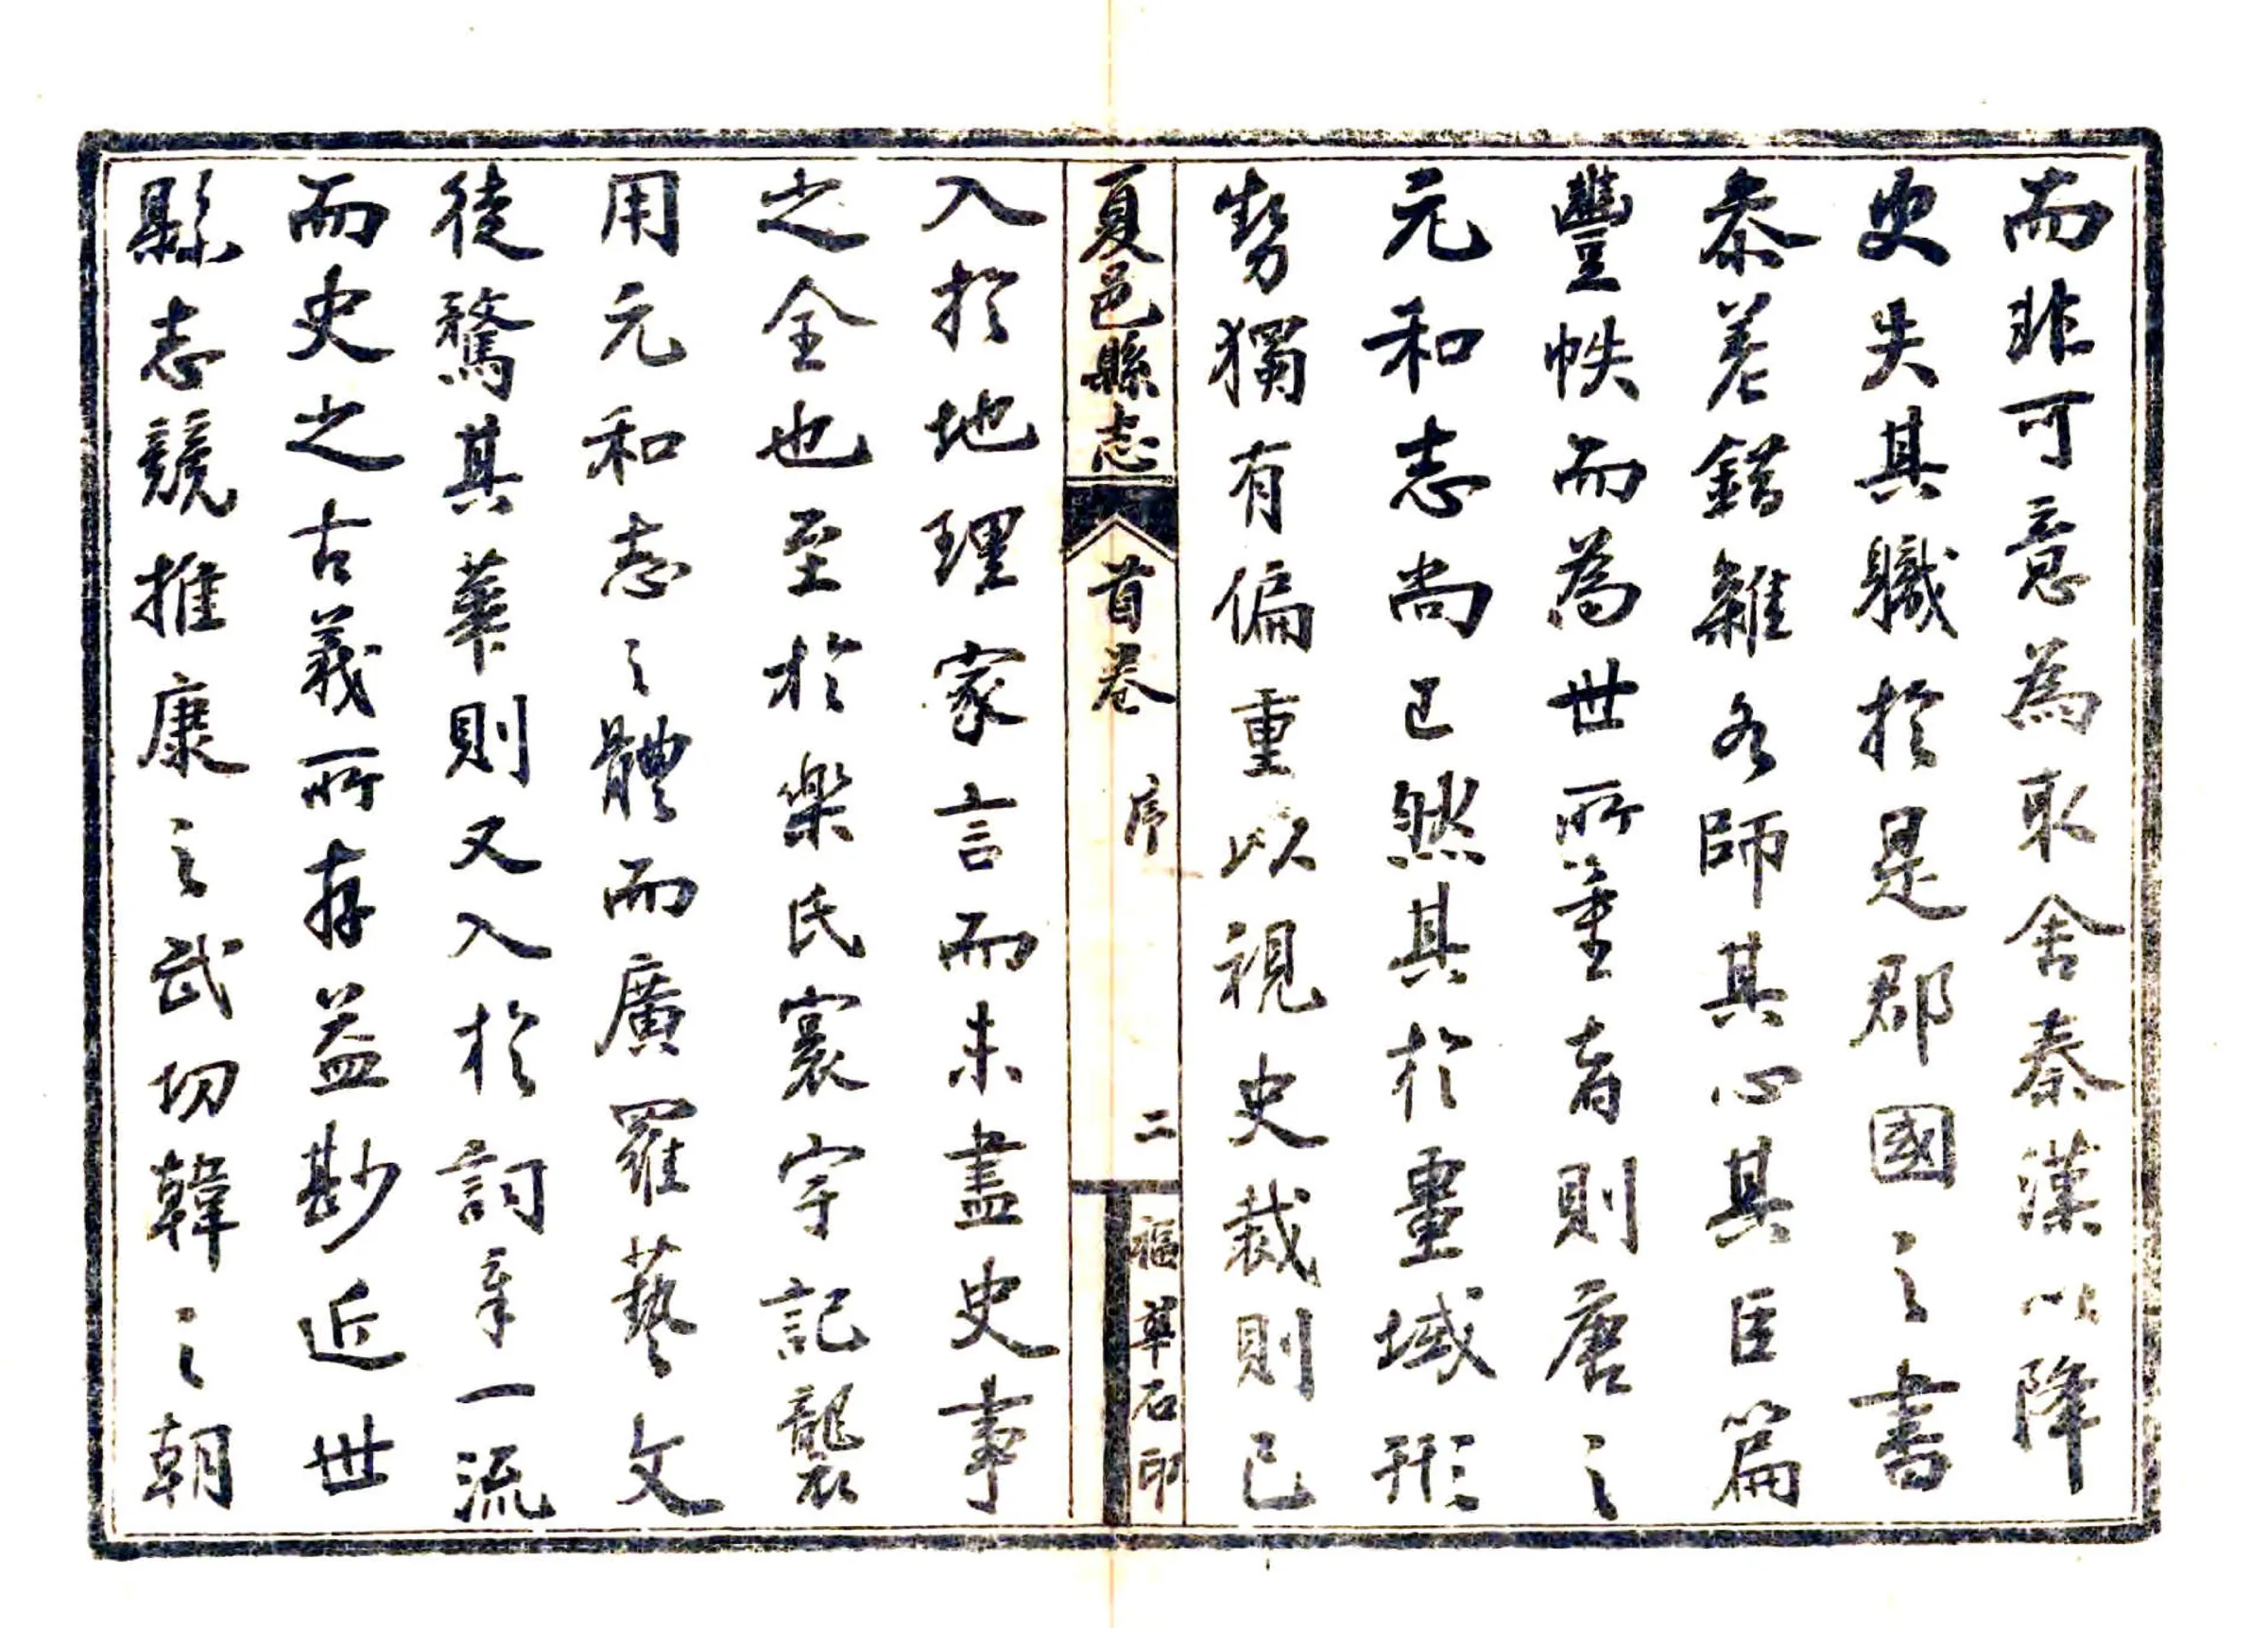 而非可意為取舍秦漢以降
史失其職於是郡國之書
叅差錯雜各師其心其臣篇
豐帙而為世所篳者則唐之
元和志尚已然其於畺域形
勢獨有偏重以視史裁則已
夏邑縣志
首卷
序
二
福華石印
入於地理家言而未盡史事
之全也至於樂氏寰宇記襲
用元和志之體而廣羅藝文
徒騖其華則又入於詞章一流
而史之古義所存益尠近世
縣志競推康之武功韓之朝